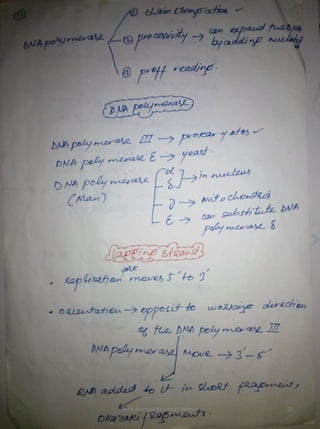 ① chain Elongation ✓
DNA polymerase ② processivity → can expand the DNA
by adding nucleoty
③ proff reading.
DNA polymerase
DNA polymerase III → prokaryotes ✓
DNA polymerase ε → yeast.
DNA polymerase α
(Man) δ → in nucleus
γ → mitochondria
ε → can substitute DNA
polymerase δ
Lagging strand
• replication fork moves 5' to 3'
• orientation → opposit to working direction
of the DNA polymerase III
DNA polymerase move → 3'-5'
RNA added to it in short fragments
Okazaki fragments.